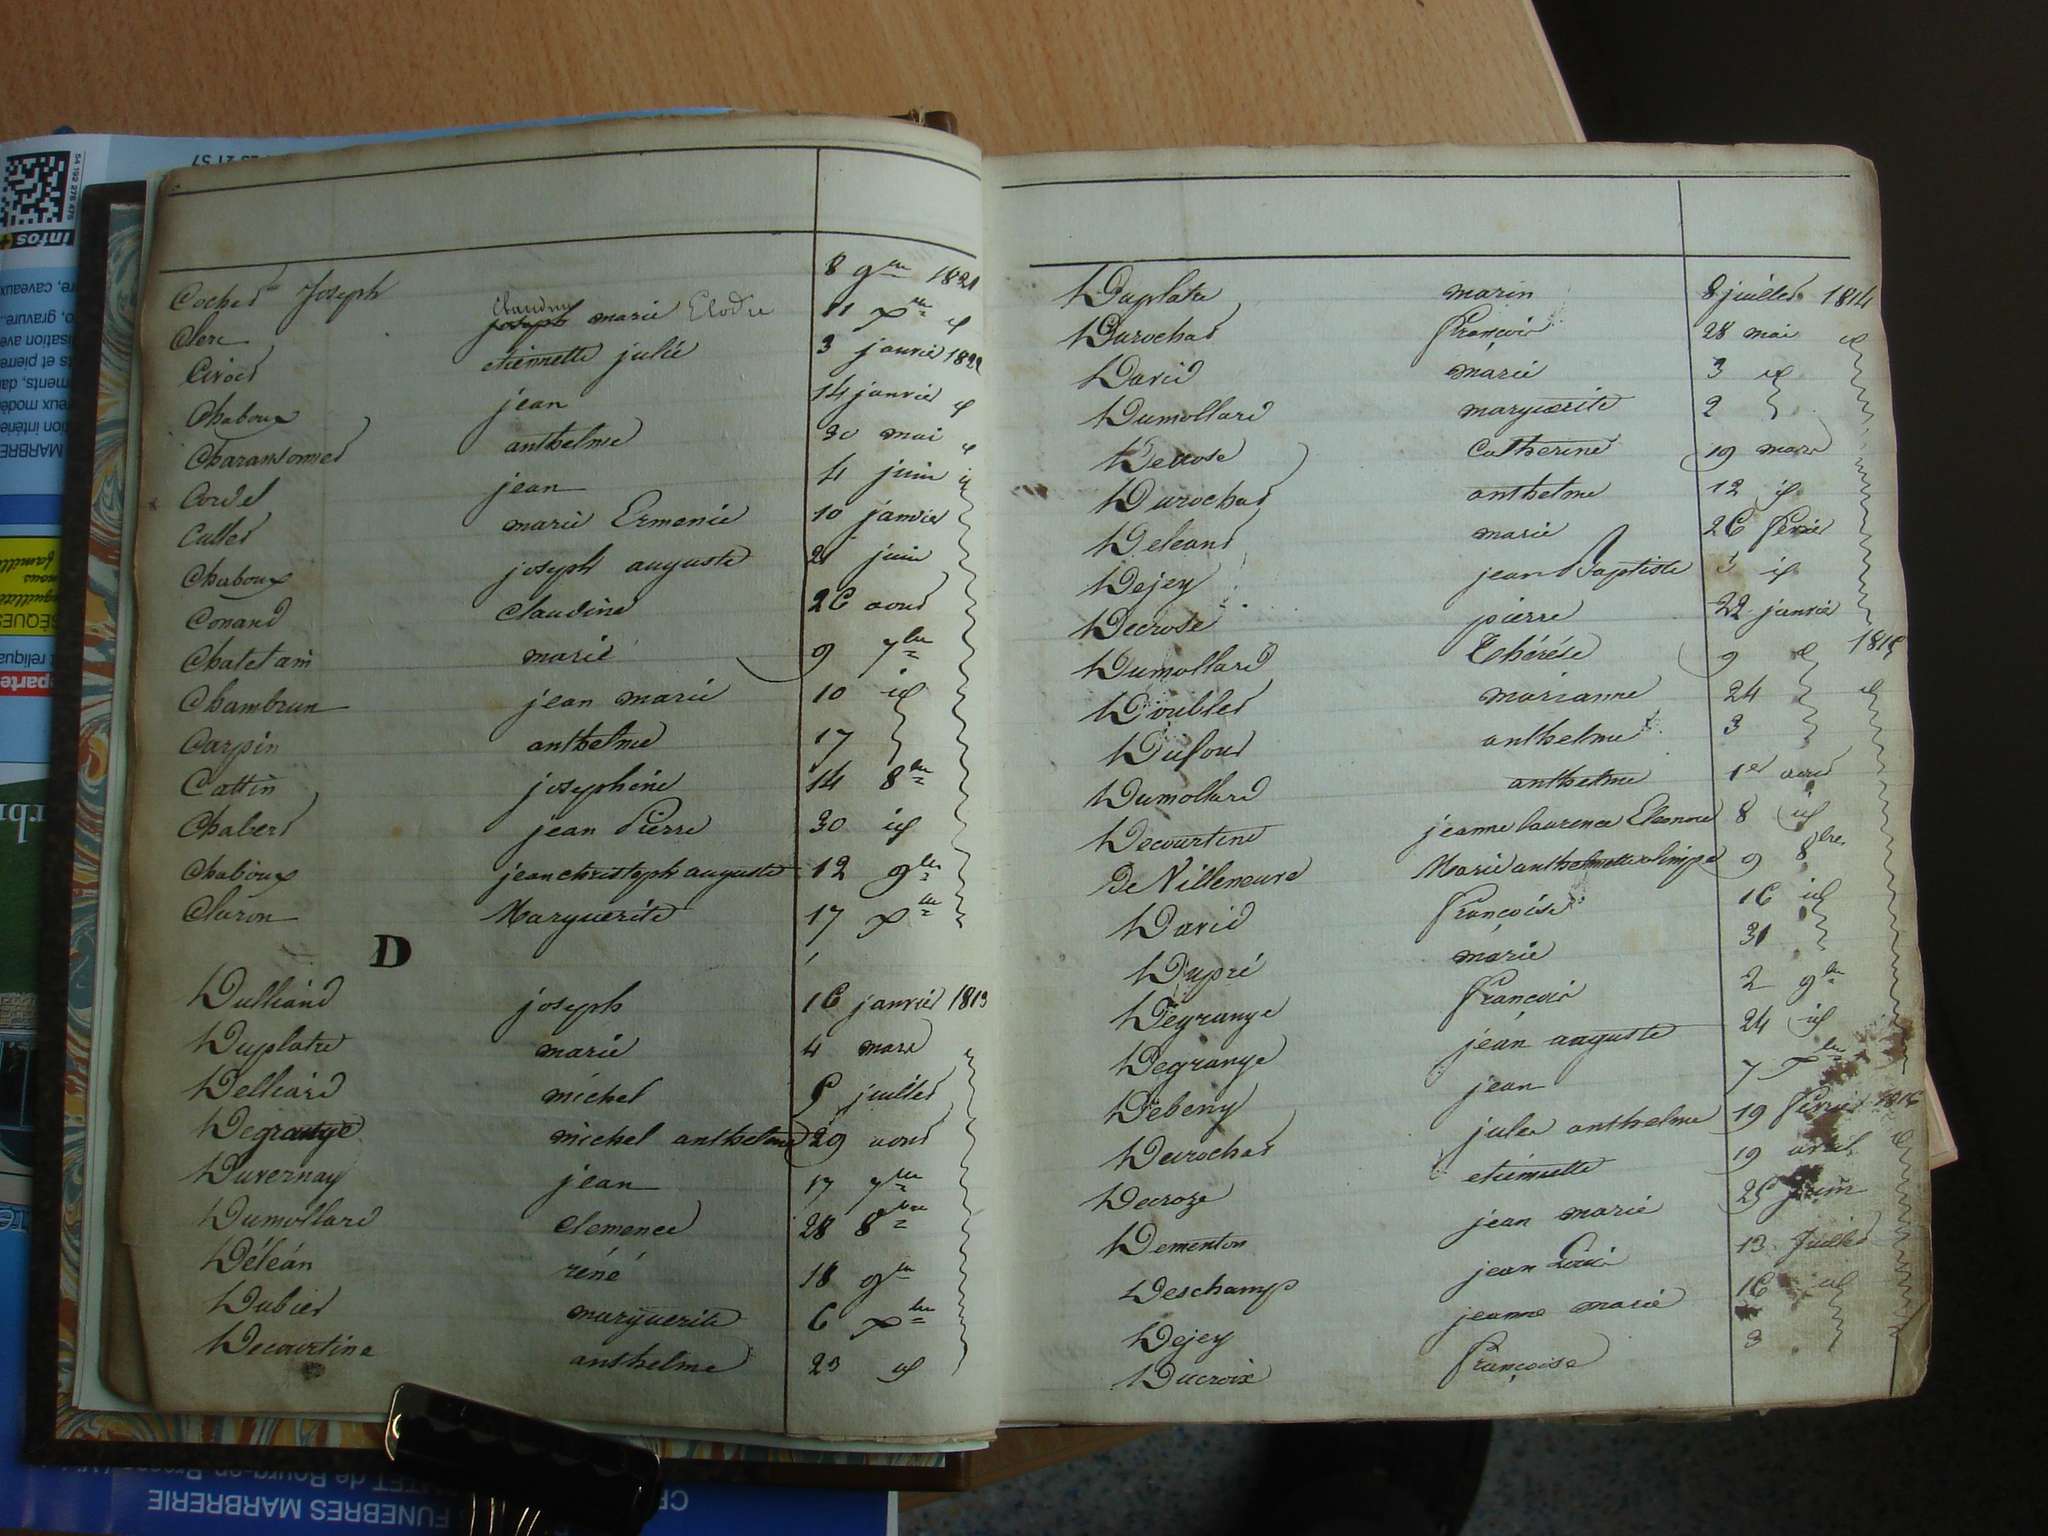 Cochet Joseph 8 9bre 1821
Clerc Claudine joseph marie Elodie 11 Xbre id
Girod etiennette julie 3 janvier 1822
Chaboux jean 14 janvier id
Charansonnet anthelme 30 mai id
Cordel jean 4 juin id
Cullet marie Ermenie 10 janvier
Chaboux joseph auguste 21 juin
Conand Claudine 26 aout
Chatelain marie 9 7bre
Chambrun jean marie 10 id
Carpin anthelme 17
Cattin josephine 14 8bre
Chabert jean Pierre 30 id
Chaboux jean christoph auguste 12 9bre
Claron Marguerite 17 Xbre
D
Dulliand joseph 16 janvier 1813
Duplatre marie 4 mars
Delliard michel 6 juillet
Degrange michel anthelme 29 aout
Duvernay jean 17 7bre
Dumollard Clemence 28 8bre
Déléan réné 18 9bre
Dubiet marguerite 6 Xbre
Decourtine anthelme 23 id
Duplatre marin 8 juillet 1814
Durochat François 28 mai id
David marie 3 id
Dumollard marguerite 2
Decrose Catherine 19 mars
Durochat anthelme 12 id
Deleand marie 26 fevrier
Dejey jean Baptiste 3 id
Decrose pierre 22 janvier
Dumollard Thérése 9 1815
Doublet marianne 24 id
Dufour anthelme 3
Dumollard anthelme 1er aout
Decourtine jeanne laurence Eleonne 8 id
De Villeneuve Marie anthelmette olimpe 9 8bre
David Françoise 16 id
Dupré marie 31
Degrange François 2 9bre
Degrange jean auguste 24 id
Debeny jean 7 Xbre
Durochat jules anthelme 19 fevrier 1816
Decroze etiennette 19 avril
Dementon jean marie 25 juin
Deschamp jean Louis 13 Juillet
Dejey jeanne marie 16 id
Ducroix Françoise 3
infos+
FUNEBRES MARBRERIE